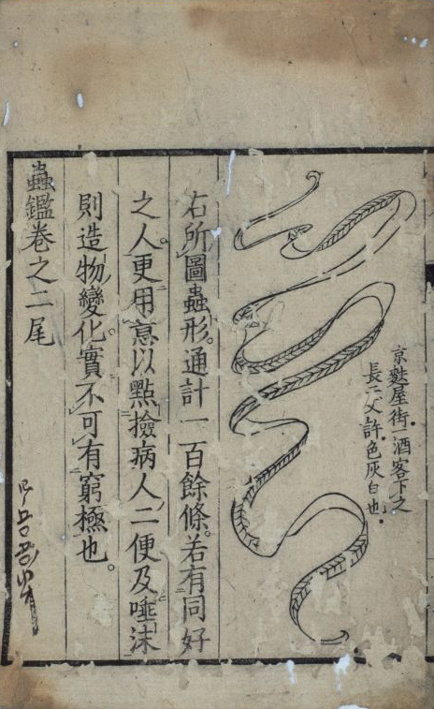 京麩屋街酒客下之
長二丈許色灰白也
右所圖蟲形。通計一百餘條。若有同好
之人。更用意以點撿病人二便及唾沫
則造物變化。實不可有窮極也。
蟲鑑卷之二尾